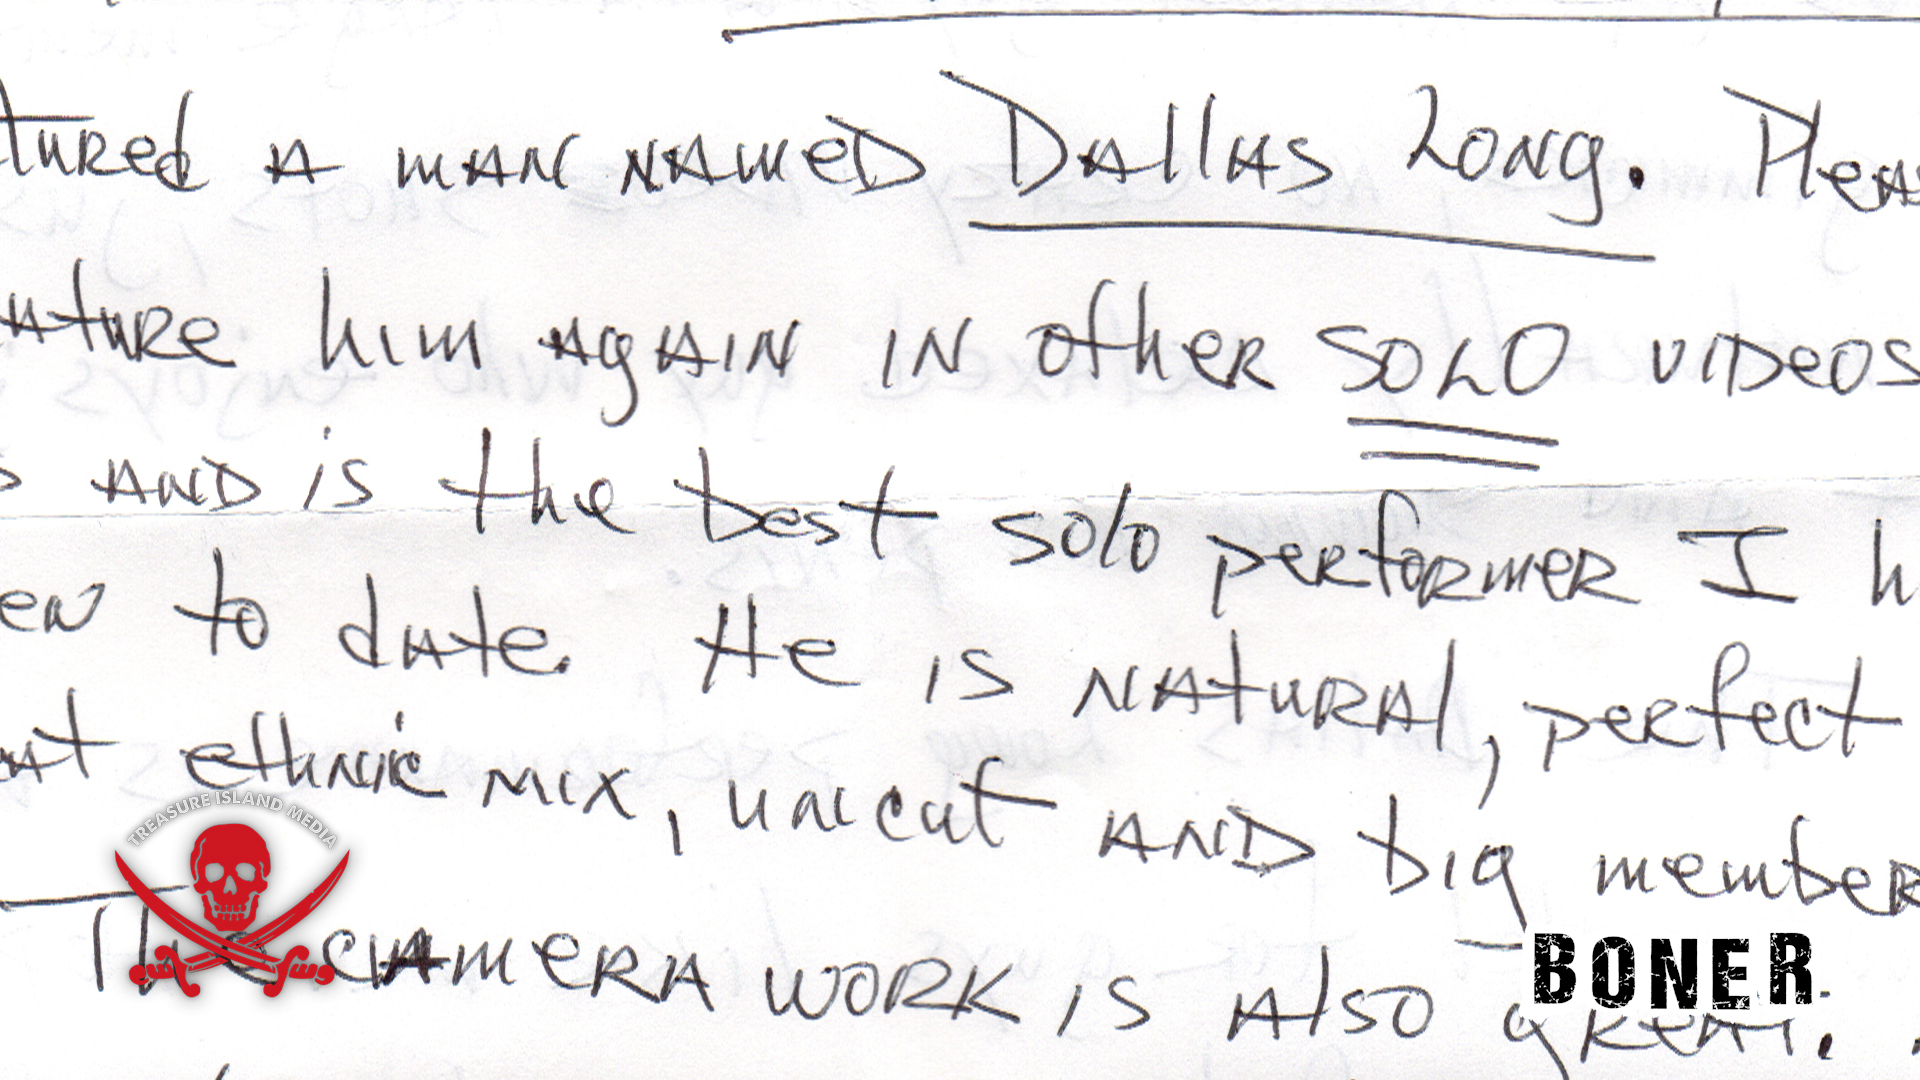 tured A MAN NAMED DALLAS LONG. Pleas
ature him AGAIN IN other SOLO VIDEOS
s AND is the best solo performer I h
en to date. He is NATURAL, perfect
at ethnic mix, uncut AND big member
The CAMERA WORK is Also great.
TREASURE ISLAND MEDIA
BONER